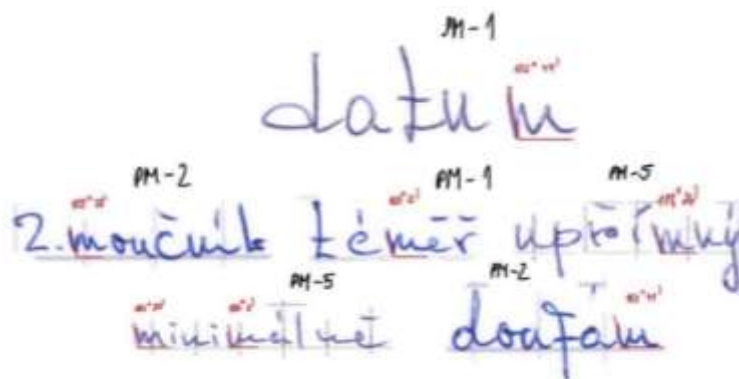 PM-1
datum
PM-2 PM-1 PM-5
2. moučník téměř upřímný
PM-5 PM-2
minimálně doufám